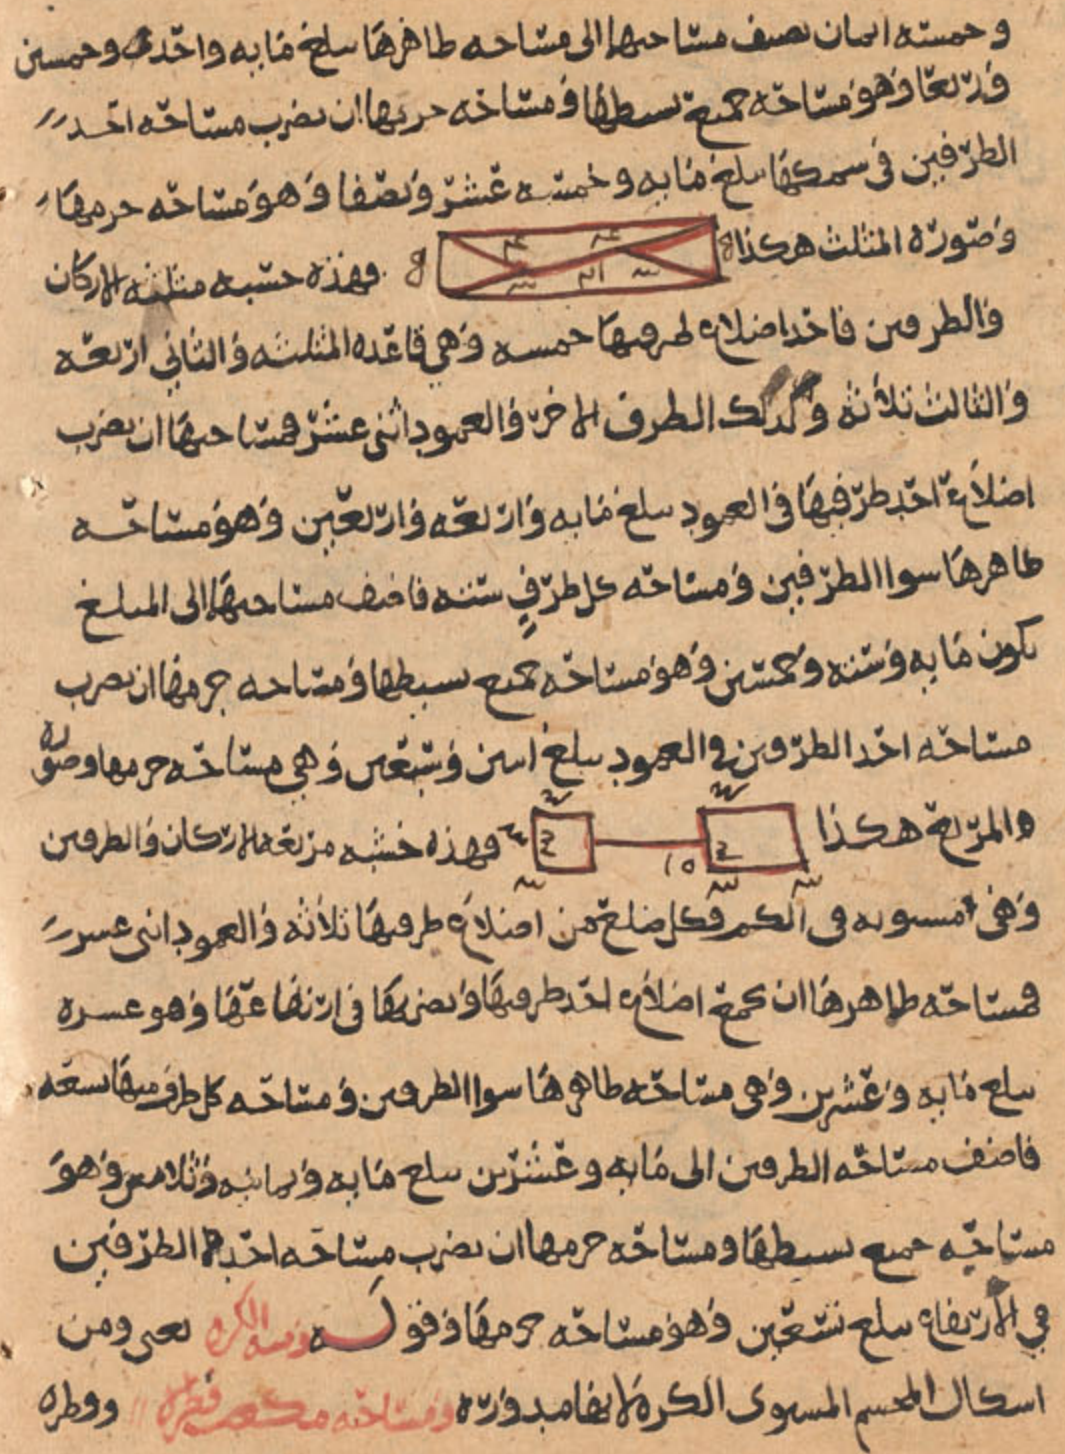 وخمسه اثمان تضف مساحتها الى مساحه ظاهرها تبلغ مايه واحدى وخمسين
وربعا وهو مساحه جميع بسيطها ومساحه جرمها ان تضرب مساحه احد
الطرفين في سمكها تبلغ مايه وخمسه عشر ونصفا وهو مساحه جرمها
وصوره المثلث هكذا فهذه خشبه مثلثه الاركان
والطرفين فاحد اضلاع طرفيها خمسه وهي قاعده المثلثه والثاني اربعه
والثالث ثلاثه وكذلك الطرف الاخر والعمود اثنى عشر فمساحتها ان تضرب
اضلاع احد طرفيها في العمود تبلغ مايه واربعه واربعين وهو مساحه
ظاهرها سوا الطرفين ومساحه كل طرف سته فاضف مساحتها الى المبلغ
يكون مايه وسته وخمسين وهو مساحه جميع بسيطها ومساحه جرمها ان تضرب
مساحه احد الطرفين في العمود تبلغ اثنين وسبعين وهي مساحه جرمها وصوره
والمربعة هكذا ١٥ فهذه خشبه مربعه الاركان والطرفين
وهي مستويه في الكم فكل ضلع من اضلاع طرفيها ثلاثه والعمود اثنى عشر
فمساحه ظاهرها ان تجمع اضلاع احد طرفيها وتضربها في ارتفاعها وهو عشره
تبلغ مايه وعشرين وهي مساحه ظاهرها سوا الطرفين ومساحه كل طرف منها تسعه
فاضف مساحه الطرفين الى مايه وعشرين تبلغ مايه وثمانيه وثلاثين وهو
مساحه جميع بسيطها ومساحه جرمها ان تضرب مساحه احد الطرفين
في الارتفاع تبلغ تسعين وهو مساحه جرمها وقوله ومنه الكره يعني ومن
اشكال المجسم المستوى الكره لانها مدوره ومساحته مكعب قطره وقطره